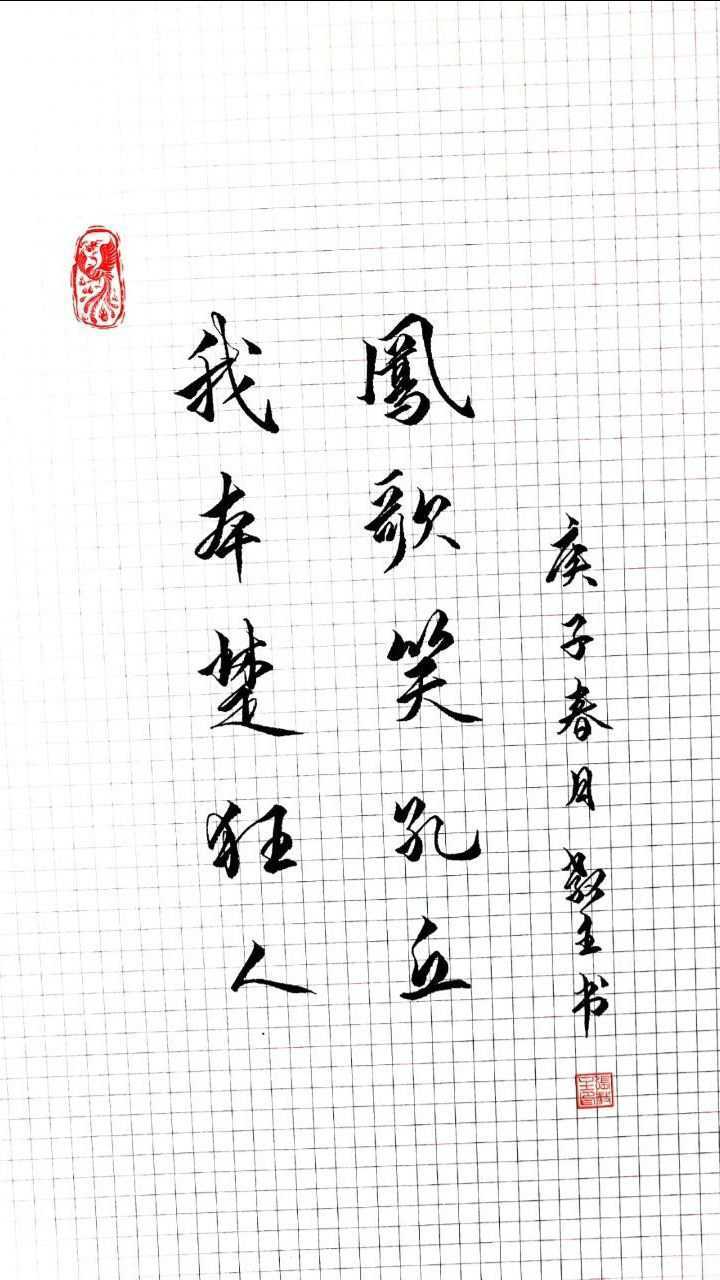 我本楚狂人
鳳歌笑孔丘
庚子春月 教主书